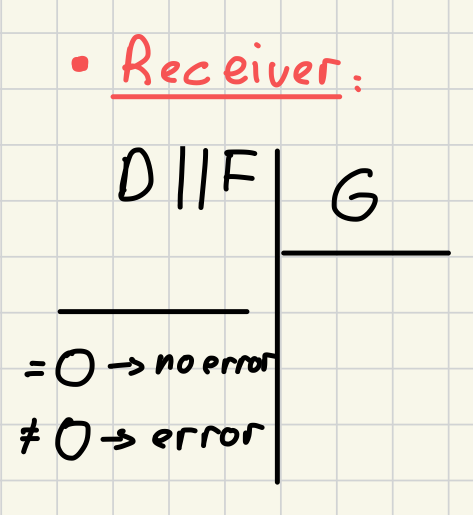 • Receiver:
D||F G
= 0 → no error
≠ 0 → error